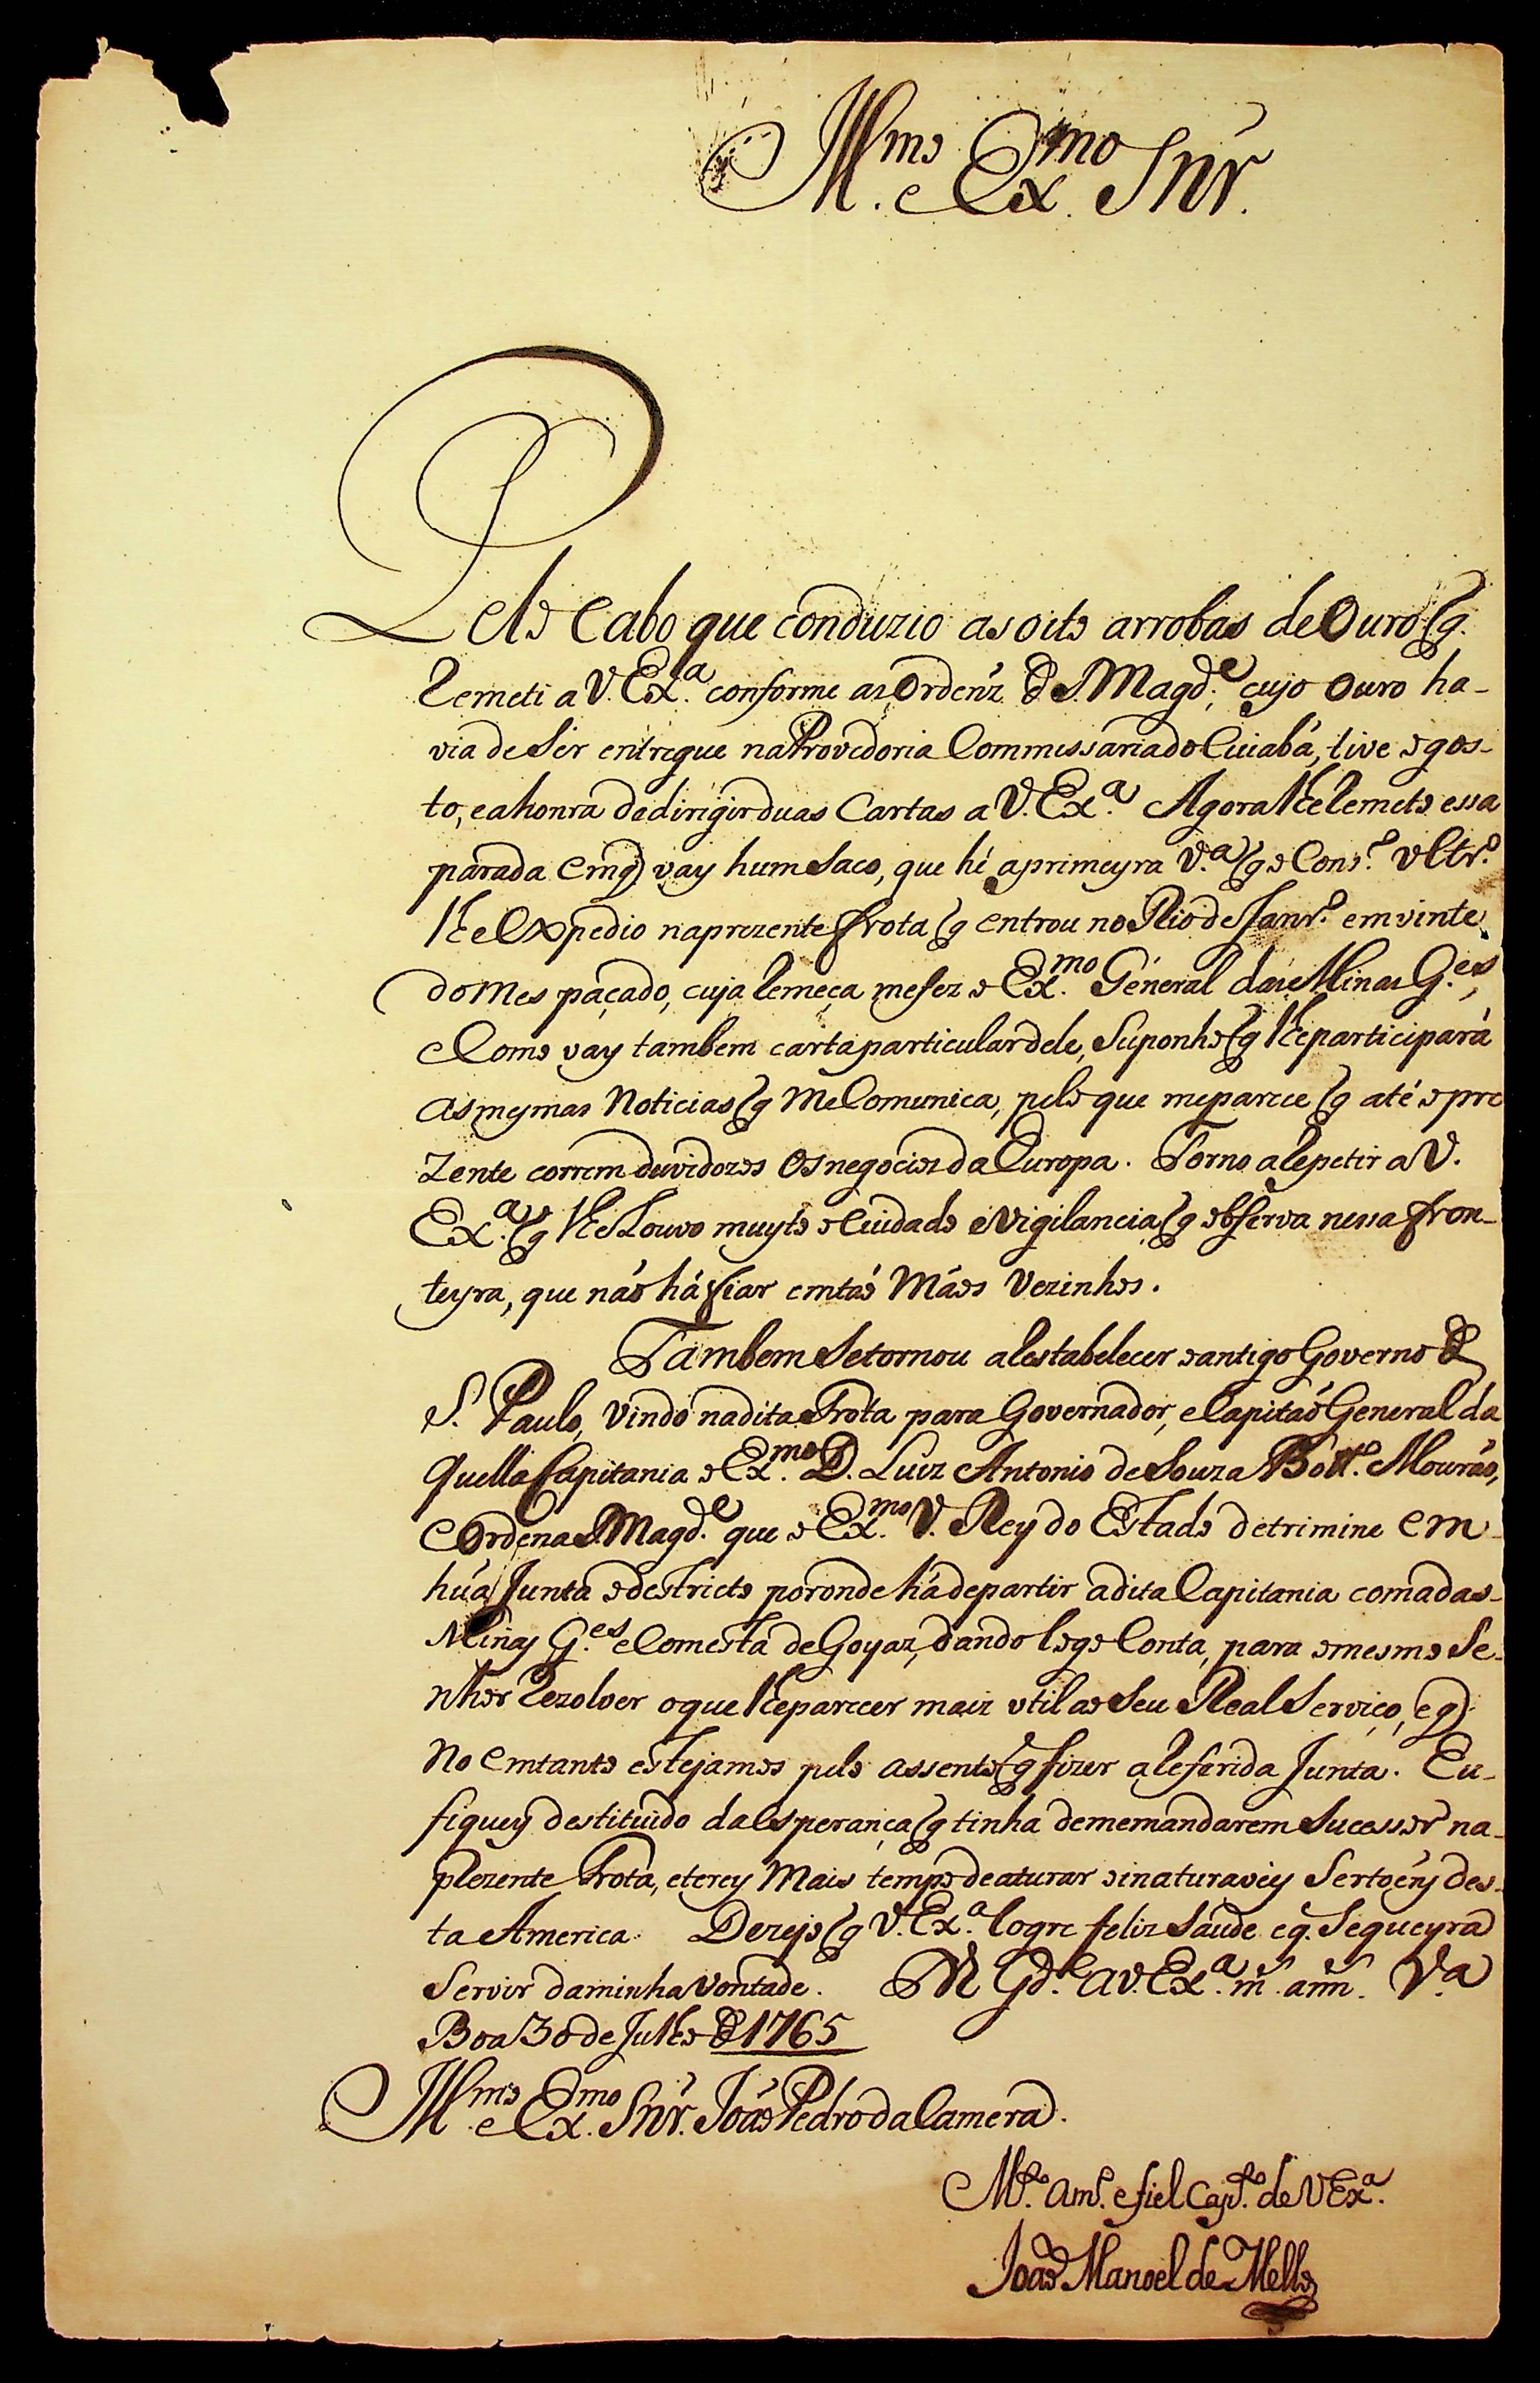 Ill.mo e Ex.mo Snr.
Pelo Cabo que conduzio as oito arrobas de Ouro q.
remeti a V. Ex.a conforme as Ordenz de S. Magd.e, cujo Ouro ha-
via de Ser entregue na Provedoria Commissaria do Cuiabá, tive o gos-
to, e a honra de dirigir duas Cartas a V. Ex.a Agora lhe remeto essa
parada em q vay hum Saco, que hé a primeyra V.a q o Cons.o Vltr.o
lhe expedio na prezente frota q entrou no Rio de Janr.o em vinte
do Mes paçado, cuja remeça me fez o Ex.mo General das Minas G.es,
e Como vay tambem carta particular dele, Suponho q lhe participará
as mesmas Noticias q me Comunica, pelo que me parece q até o pre
zente correm duvidozos os negocioz da Europa. Torno a repetir a V.
Ex.a q lhe Louvo muyto o Cuidado e vigilancia q observa nessa fron-
teyra, que não há q fiar em tão Máos Vezinhos.
Tambem Se tornou a restabelecer o antigo Governo de
S. Paulo, vindo na dita Frota para Governador, e Capitão General da
quella Capitania o Ex.mo D. Luiz Antonio de Souza Bott.o Mourão,
e Ordena S. Magd.e que o Ex.mo V. Rey do Estado detrimine em
húa Junta o destricto por onde há de partir a dita Capitania com a das
Minas G.es e Com esta de Goyaz, dando logo Conta, para o mesmo Se-
nhor rezolver o que lhe parecer maiz util ao Seu Real Serviço, e q
no emtanto estejamos pelo assento q fizer a referida Junta. Eu
fiquey destituido da esperança q tinha de me mandarem Sucessor na
prezente Frota, e terey Mais tempo de aturar o inaturaveis Sertoens des-
ta America. Dezejo q V. Ex.a logre feliz Saude e q. Se queyra
Servir da minha Vontade. D.s G.de a V. Ex.a m. ann. V.a
Boa 30 de Julho de 1765
Ill.mo e Ex.mo Snr. João Pedro da Camera.
M.to Am.o e fiel Cap.to de V Ex.a
João Manoel de Mello